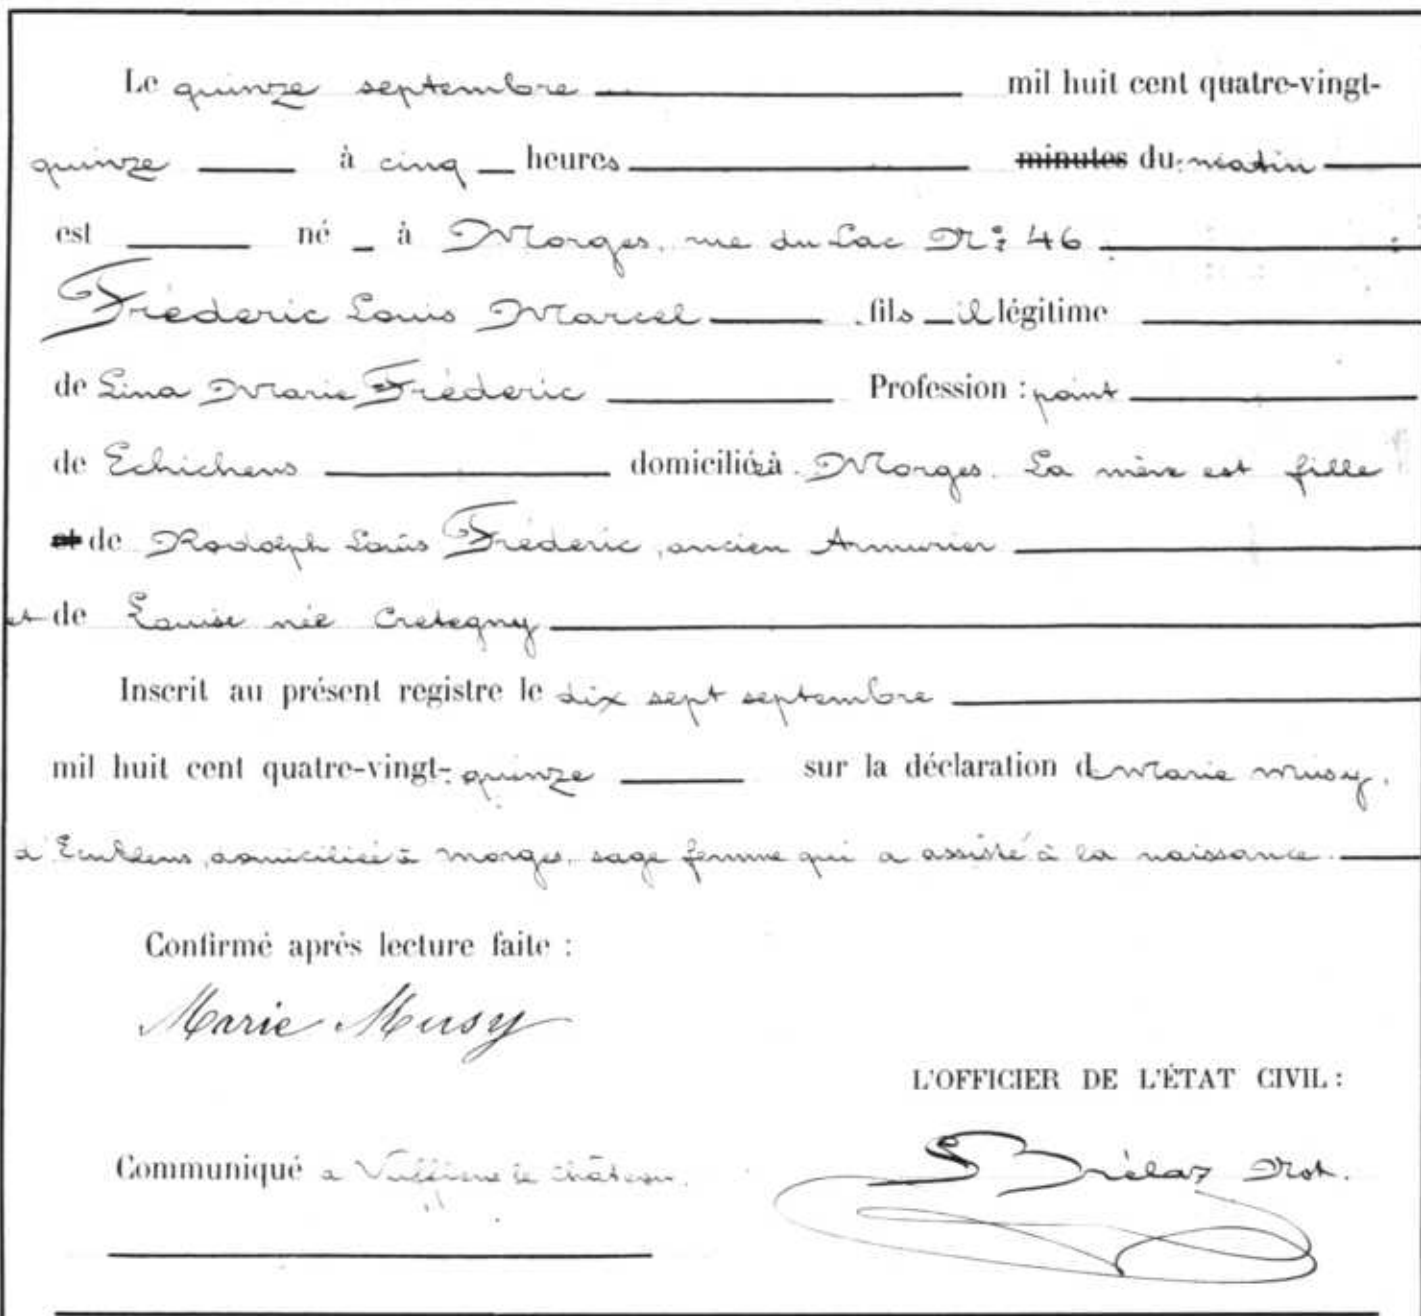 Le quinze septembre mil huit cent quatre-vingt-
quinze à cinq heures minutes du matin
est né à Morges, rue du Lac No: 46
Fréderic Louis Marcel fils illégitime
de Lina Marie Fréderic Profession : point
de Echichens domiciliée à Morges. La mère est fille
et de Rodolph Louis Fréderic, ancien Armurier
et de Louise née Cretegny
Inscrit au présent registre le dix sept septembre
mil huit cent quatre-vingt-quinze sur la déclaration de Marie Musy,
d'Ecublens, domiciliée à Morges, sage femme qui a assisté à la naissance.
Confirmé après lecture faite :
Marie Musy
L'OFFICIER DE L'ÉTAT CIVIL :
Communiqué a Vufflens le Château.
S Brélaz Not.